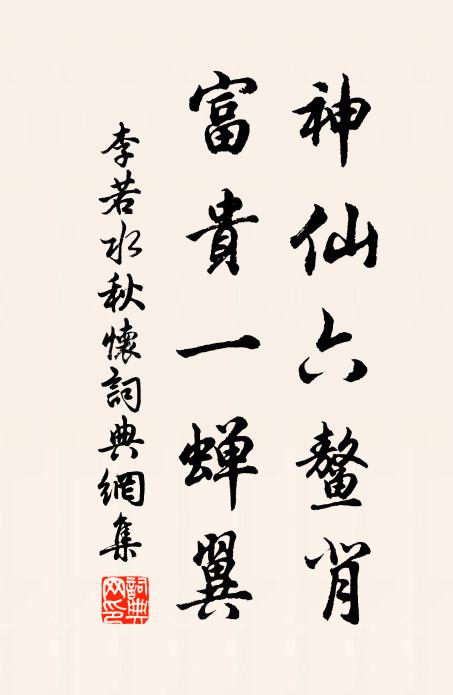 神仙六鳌背
富貴一蝉翼
李若水秋懷詞典網集
詞典
网印